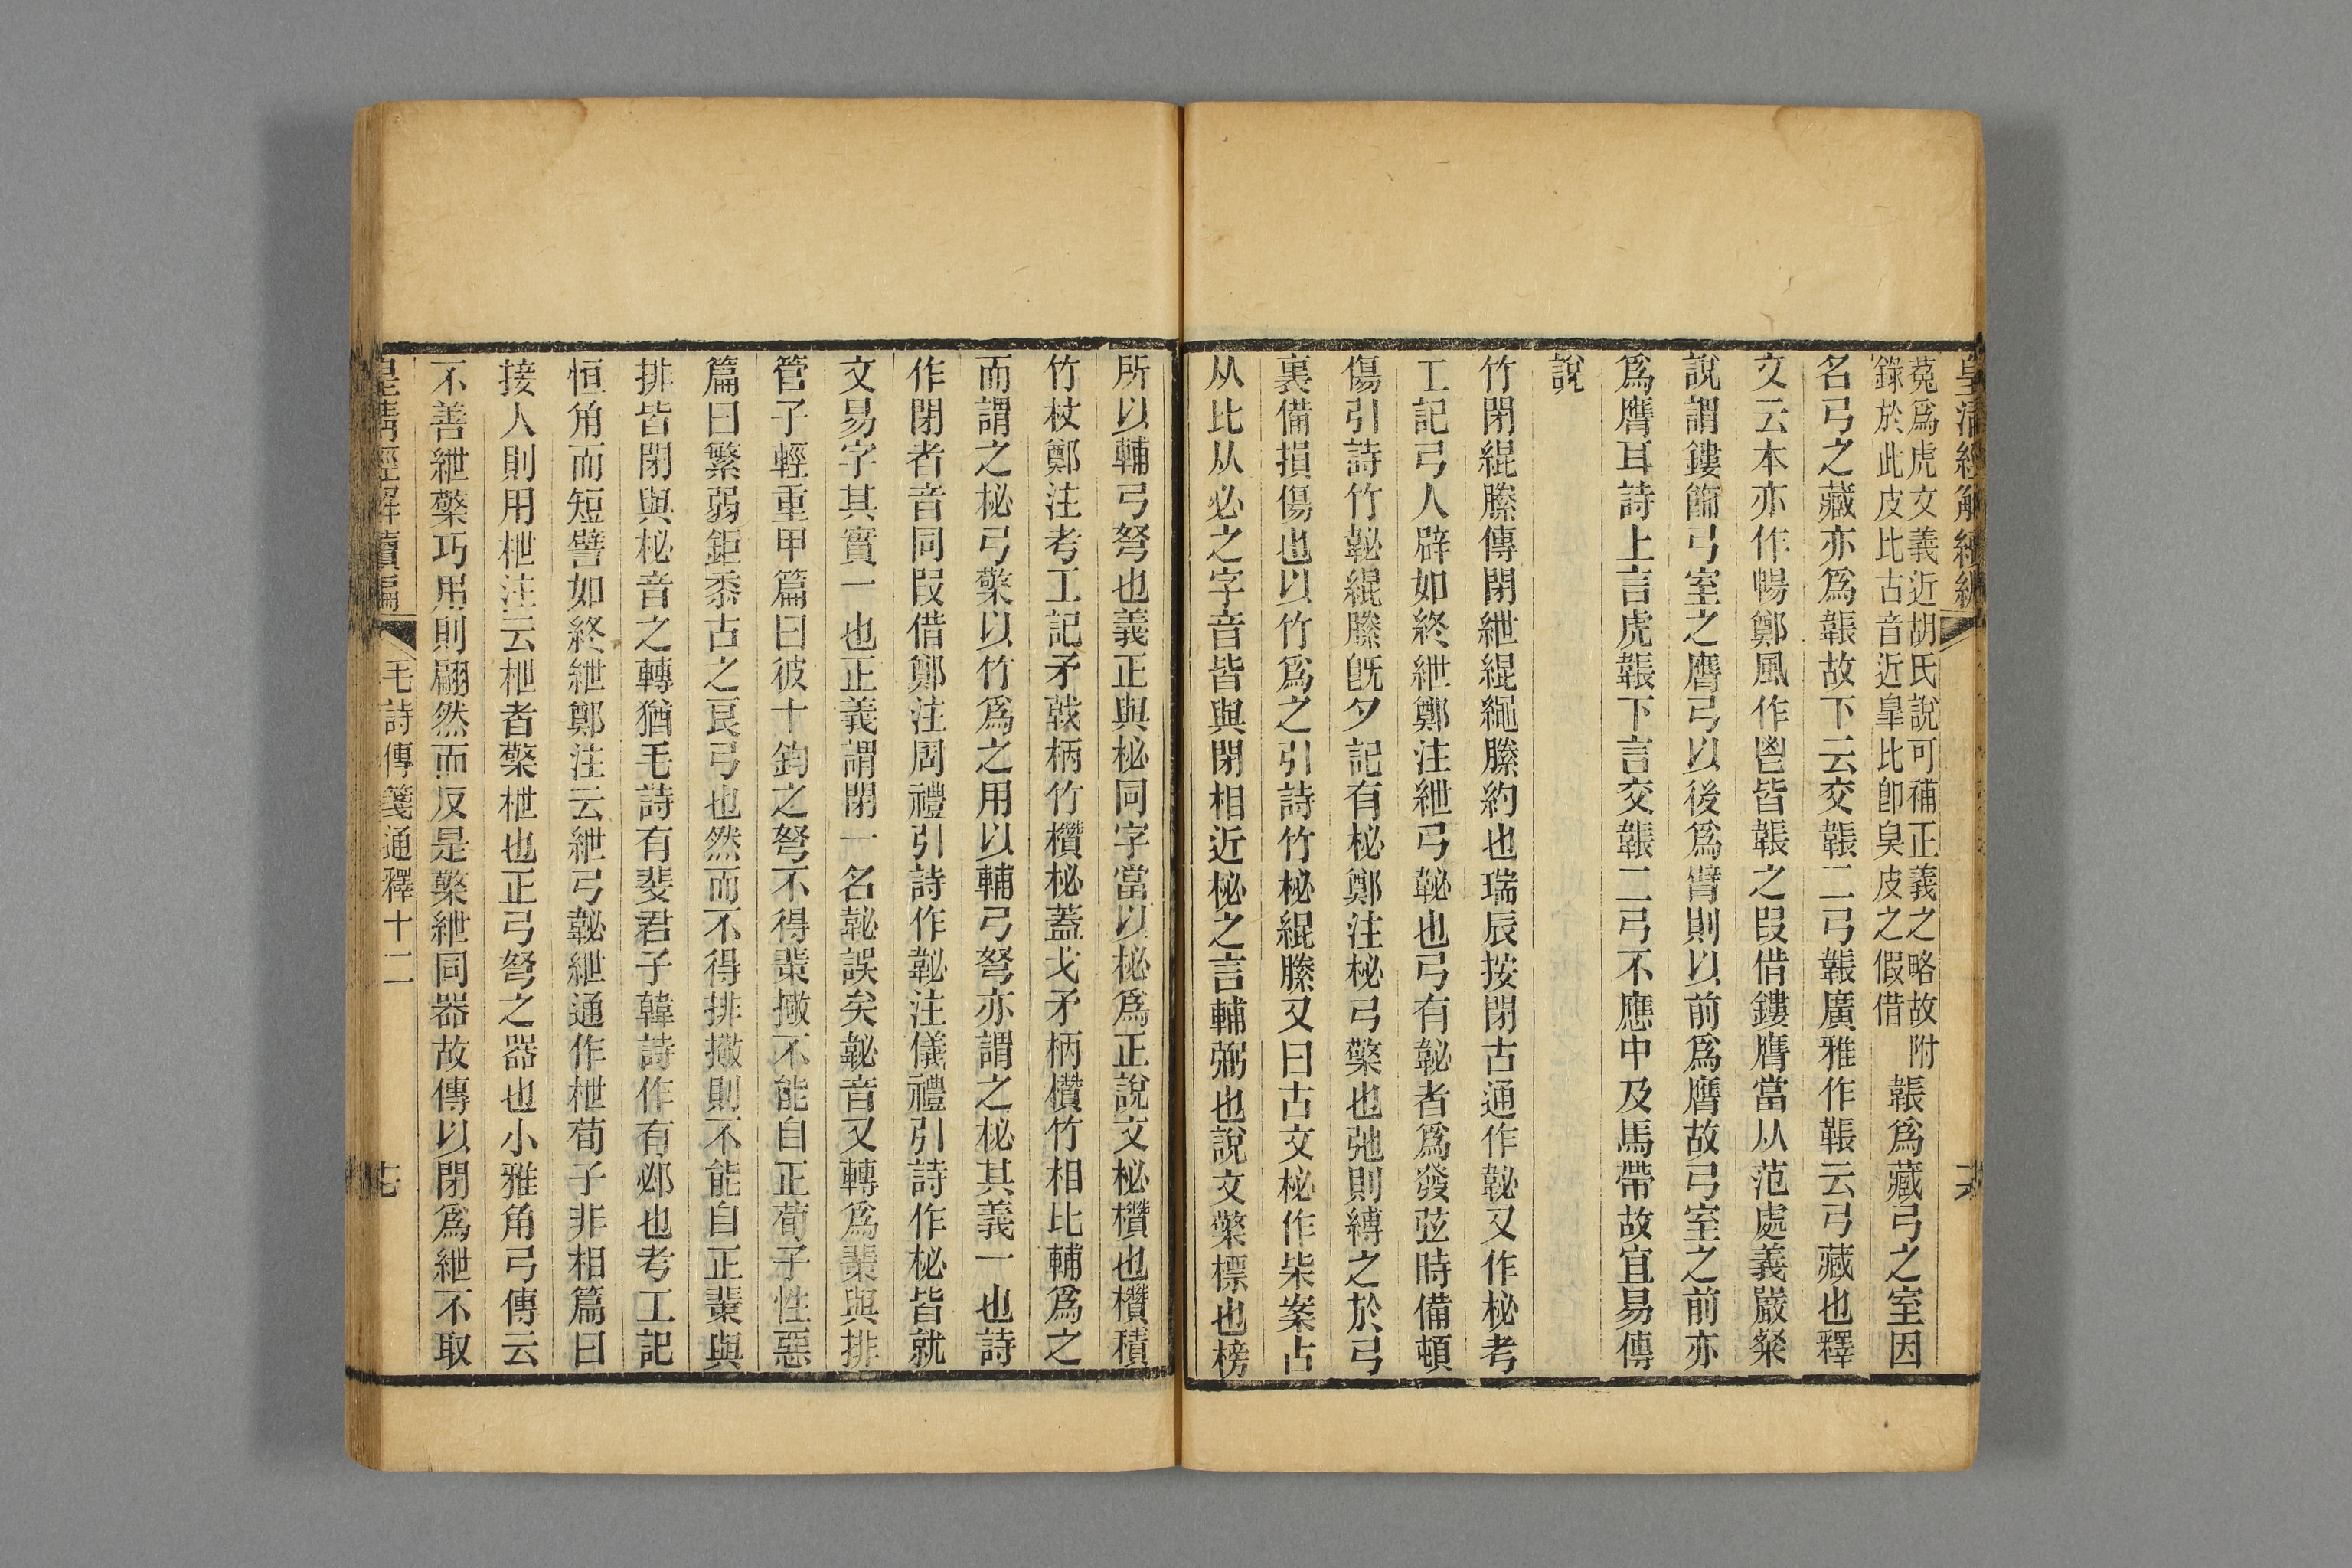 皇清經解續編
菟爲虎文義近胡氏說可補正義之略故附
錄於此皮比古音近臯比卽臭皮之假借
韔爲藏弓之室因
名弓之藏亦爲韔故下云交韔二弓韔廣雅作韔云弓藏也釋
文云本亦作暢鄭風作鬯皆韔之叚借鏤膺當从范處義嚴粲
說謂鏤飾弓室之膺弓以後爲臂則以前爲膺故弓室之前亦
爲膺耳詩上言虎韔下言交韔二弓不應中及馬帶故宜易傳
說
竹閉緄縢傳閉紲緄繩縢約也瑞辰按閉古通作䪐又作柲考
工記弓人辟如終紲鄭注紲弓䪐也弓有䪐者爲發弦時備頓
傷引詩竹䪐緄縢旣夕記有柲鄭注柲弓檠也弛則縛之於弓
裏備損傷也以竹爲之引詩竹柲緄縢又曰古文柲作柴案古
从比从必之字音皆與閉相近柲之言輔弼也說文檠榜也榜
所以輔弓弩也義正與柲同字當以柲爲正說文柲欑也欑積
竹杖鄭注考工記矛戟柄竹欑柲蓋戈矛柄欑竹相比輔爲之
而謂之柲弓檠以竹爲之用以輔弓弩亦謂之柲其義一也詩
作閉者音同叚借鄭注周禮引詩作䪐注儀禮引詩作柲皆就
文易字其實一也正義謂閉一名䪐誤矣䪐音又轉爲棐與排
管子輕重甲篇曰彼十鈞之弩不得棐撖不能自正荀子性惡
篇曰繁弱鉅黍古之良弓也然而不得排檠則不能自正棐與
排皆閉與柲音之轉猶毛詩有斐君子韓詩作有邲也考工記
恒角而短譬如終紲鄭注云紲弓䪐紲通作枻荀子非相篇曰
接人則用枻注云枻者檠枻也正弓弩之器也小雅角弓傳云
不善紲檠巧用則翩然而反是檠紲同器故傳以閉爲紲不取
皇清經解續編
毛詩傳箋通釋十二